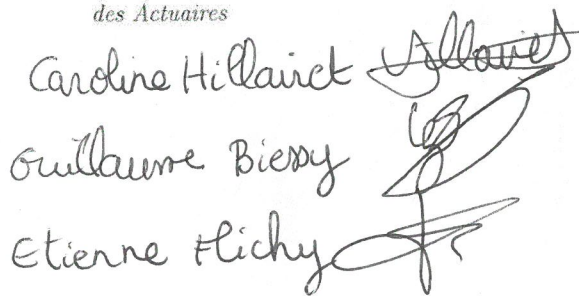 des Actuaires
Caroline Hillairet
Guillaume Biessy
Etienne Flichy